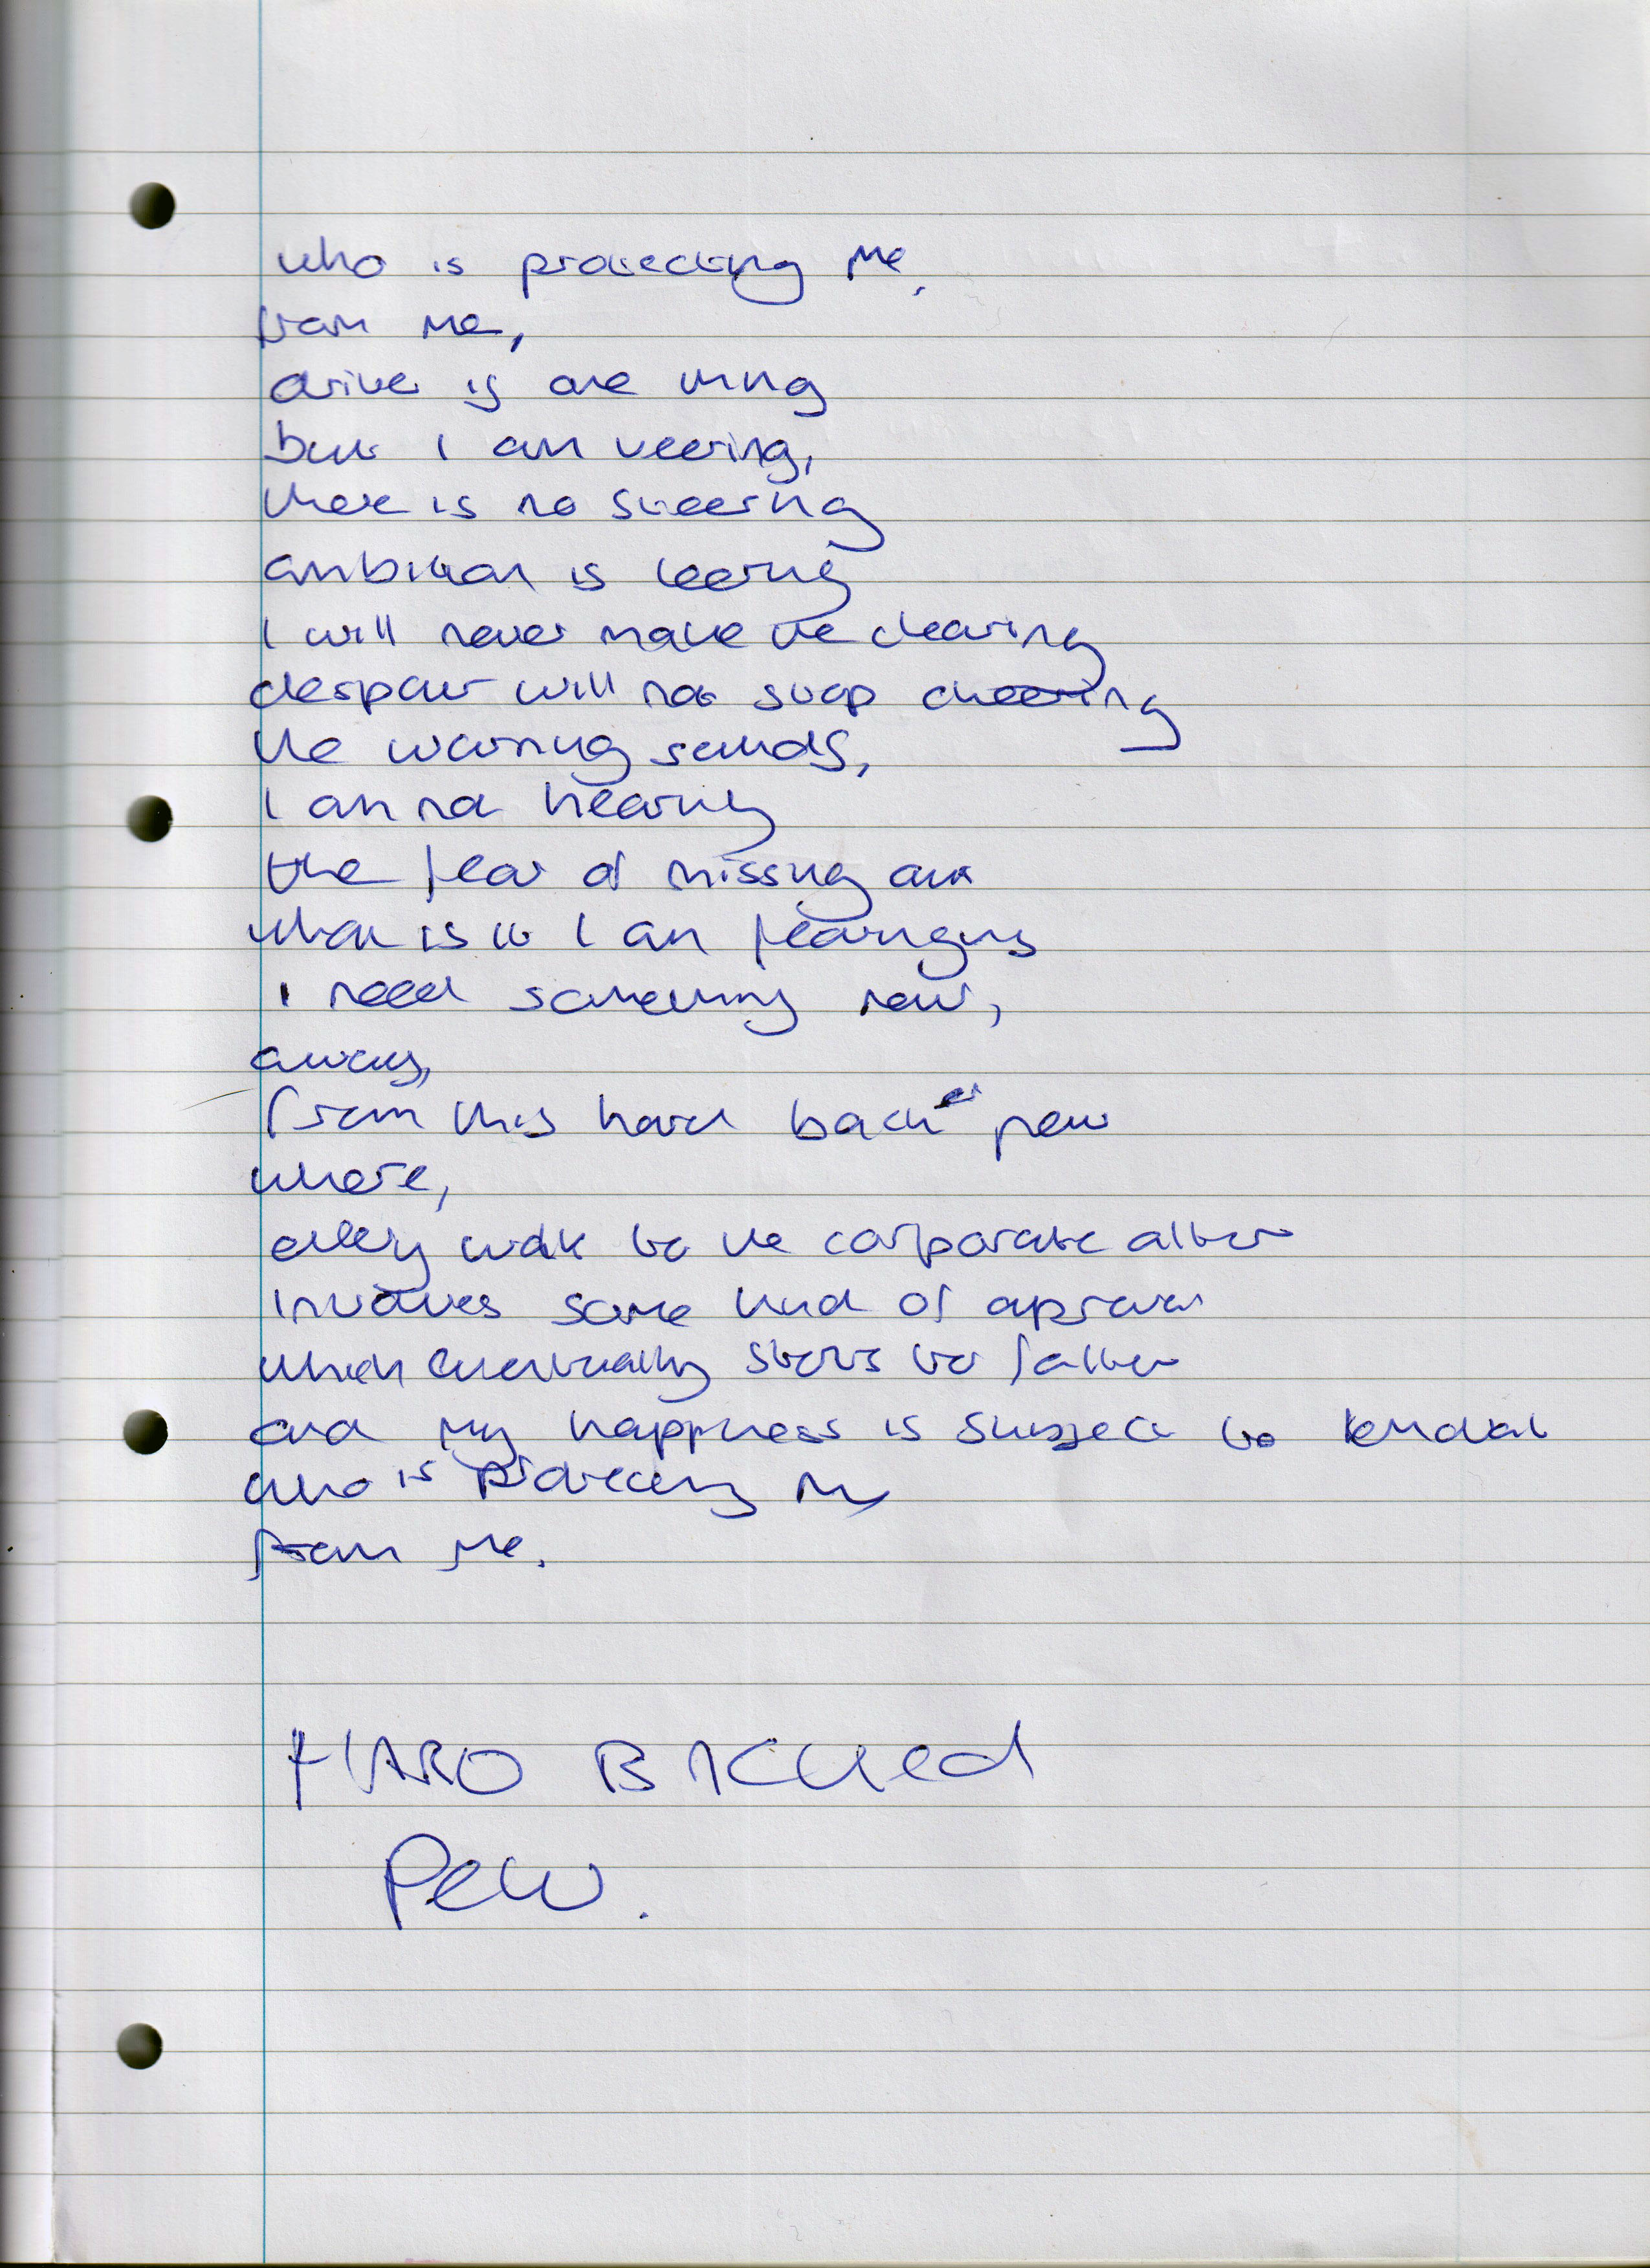 who is protecting me,
from me,
drive is one thing
but I am veering,
there is no steering
ambition is leering
I will never make the clearing
despair will not stop cheering
the warning sounds,
I am not hearing
the fear of missing out
what is it I am fearing
I need something new,
away,
from this hard backed pew
where,
every walk to the corporate alter
involves some kind of
which eventually starts to falter
and my happiness is subject to
who is protecting me
from me.
HARD BACKed
Pew.